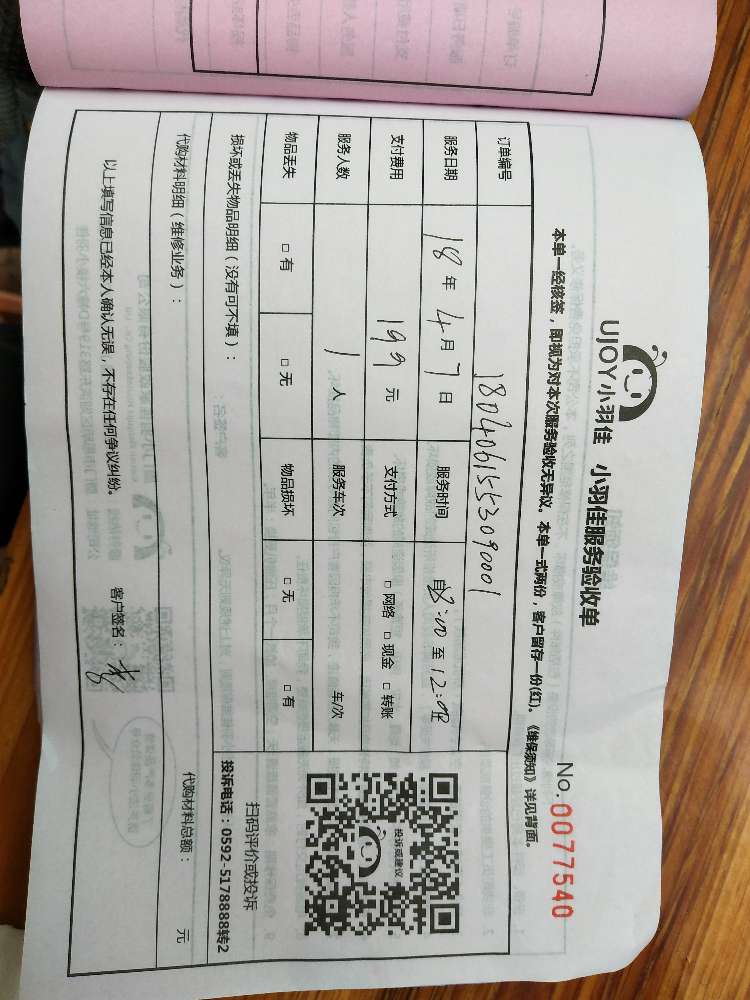 UJOY小羽佳 小羽佳服务验收单
No.0077540
本单一经核签，即视为对本次服务验收无异议。本单一式两份，客户留存一份(红)。《维保须知》详见背面。
订单编号 1804061553090001
服务日期 18年4月7日 服务时间 自8:00至12:00
支付费用 199元 支付方式 □网络 □现金 □转账
服务人数 1人 服务车次 车/次
物品丢失 □有 □无 物品损坏 □无 □有
投诉或建议
扫码评价或投诉
投诉电话：0592-5178888转2
损坏或丢失物品明细（没有可不填）：
代购材料明细（维修业务）： 代购材料总额： 元
以上填写信息已经本人确认无误，不存在任何争议纠纷。
客户签名：